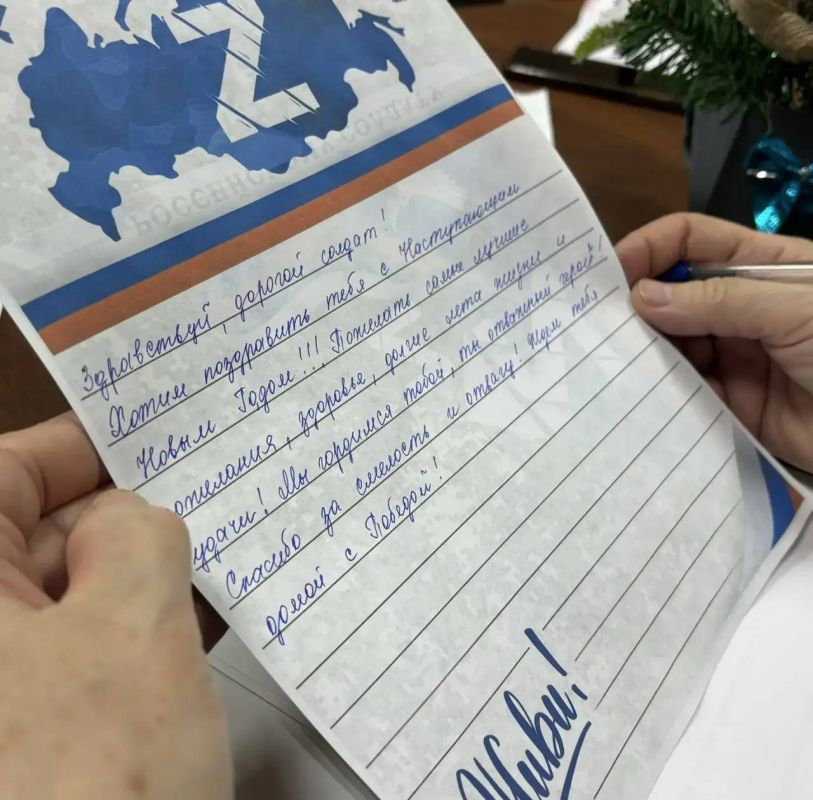 Z
РОССИЙСКИЙ СОЛДАТ
Здравствуй, дорогой солдат!
Хотим поздравить тебя с Наступающем
Новым Годом!!! Пожелать самые лучшие
ожелания, здоровья, долгие лета жизни и
удачи! Мы гордимся тобой, ты отважный герой!
Спасибо за смелость и отвагу! Ждем тебя
домой с Победой!
Живи!